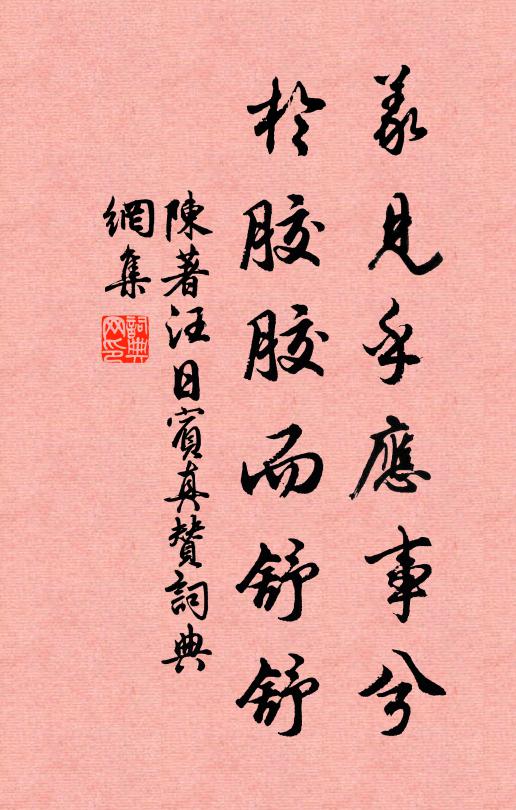 義見乎應事兮
於膠膠而舒舒
陳著汪日賓真贊詞典
網集
詞典網印